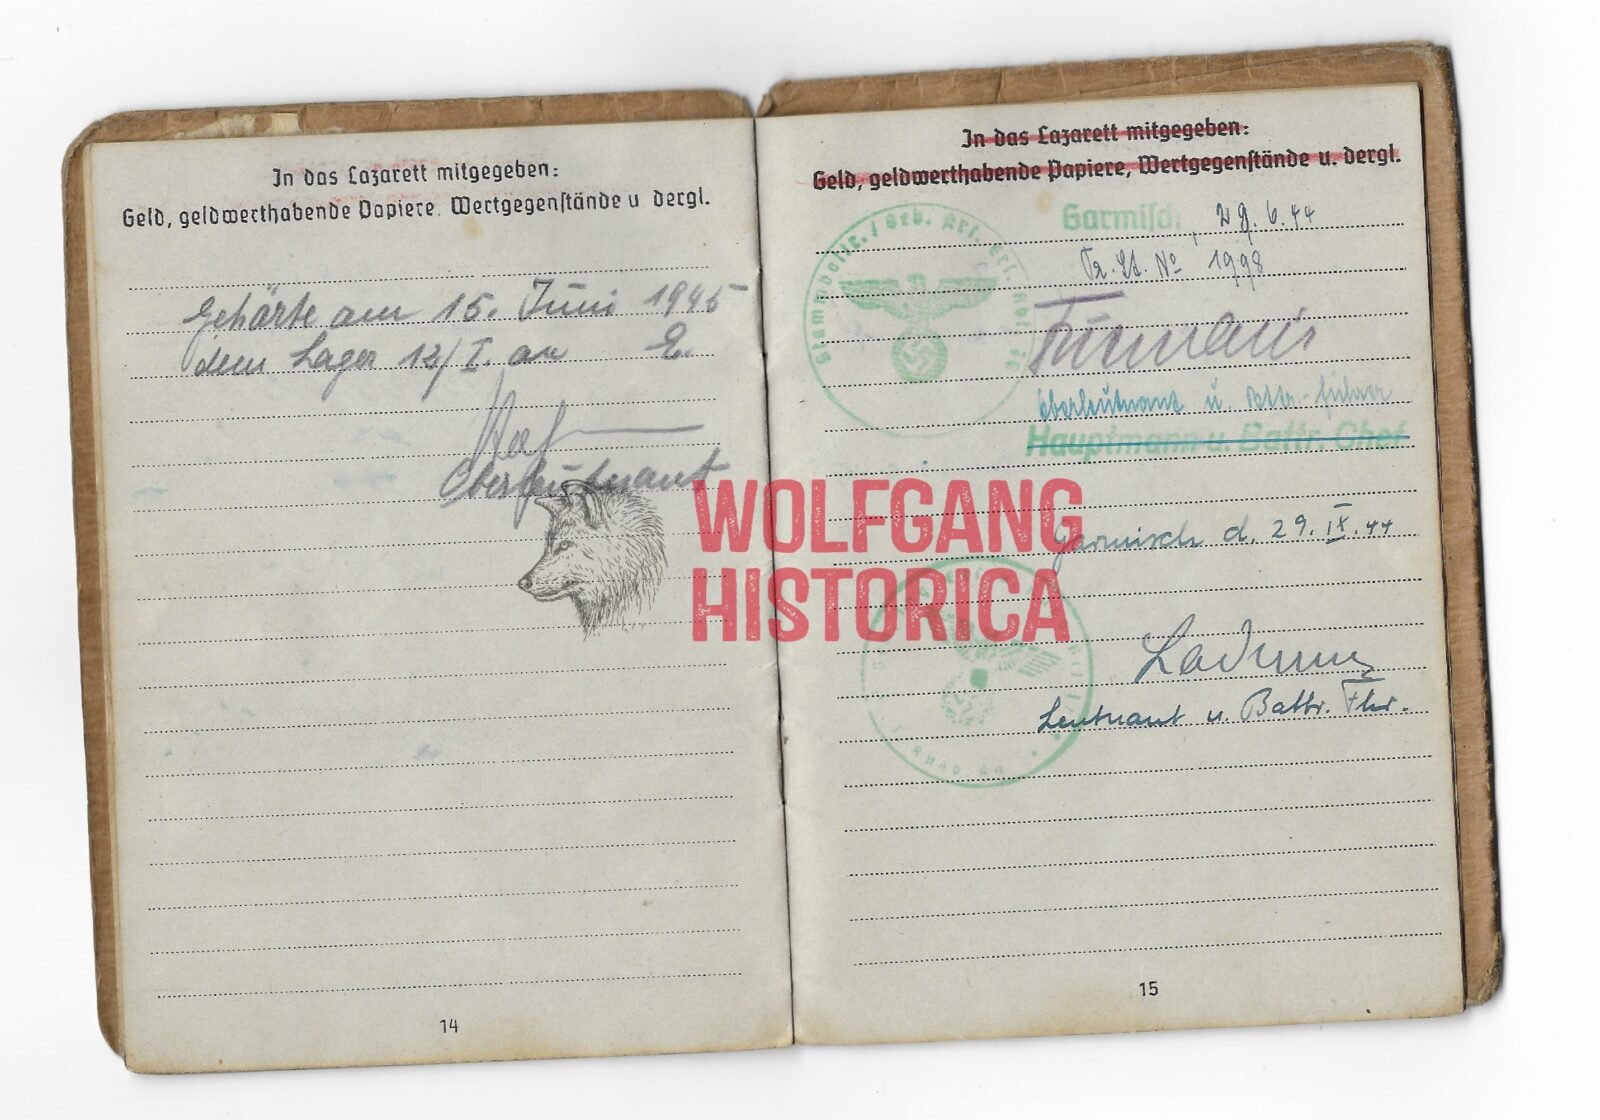 In das Lazarett mitgegeben:
Geld, geldwerthabende Papiere, Wertgegenstände u dergl.
Gehörte am 15. Juni 1945
dem Lager 12/I. an E.
Oberleutnant
14
In das Lazarett mitgegeben:
Geld, geldwerthabende Papiere, Wertgegenstände u. dergl.
Stammbattr. / Geb. Art. Ers. Abt. 79
Garmisch, 29.6.44
Tr. St. Nº 1998
Oberleutnant u. Bttr.-führer
Hauptmann u. Battr. Chef
Garmisch d. 29.IX.44
Leutnant u. Battr. Fhr.
15
WOLFGANG
HISTORICA